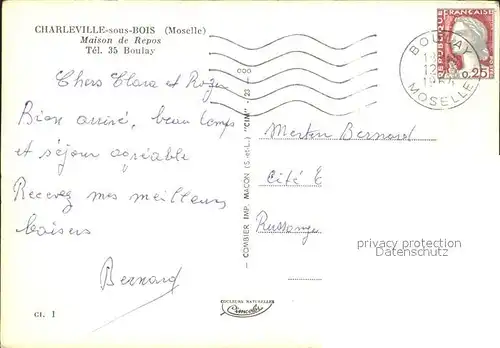 CHARLEVILLE-sous-BOIS (Moselle)
Maison de Repos
Tél. 35 Boulay
Chers Clara et Roger
Bien arrivé, beau temps
et séjour agréable
Recevez mes meilleurs
baisers
Bernard
Cl. 1
COMBIER IMP. MACON (S.-et-L.) "CIM"
COULEURS NATURELLES
Cimcolor
REPUBLIQUE FRANÇAISE
0,25
BOULAY
MOSELLE
Bernard
Cité E
Russange
privacy protection
Datenschutz